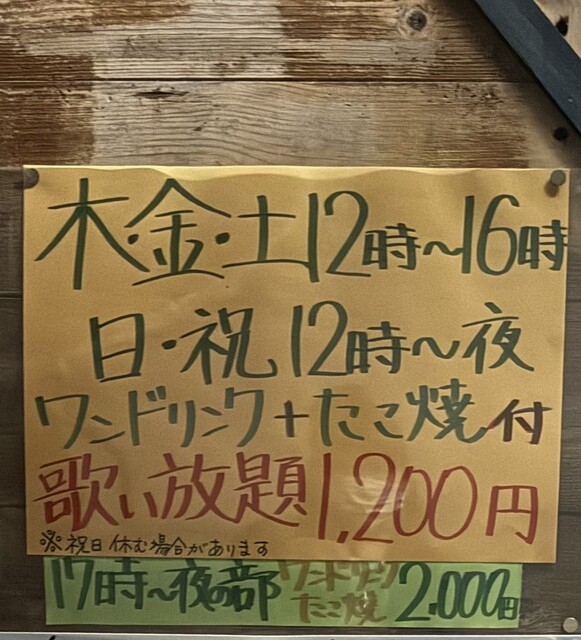 木・金・土12時〜16時
日・祝12時〜夜
ワンドリンク+たこ焼付
歌い放題1,200円
※祝日休む場合があります
17時〜夜の部 ワンドリンク たこ焼 2,000円